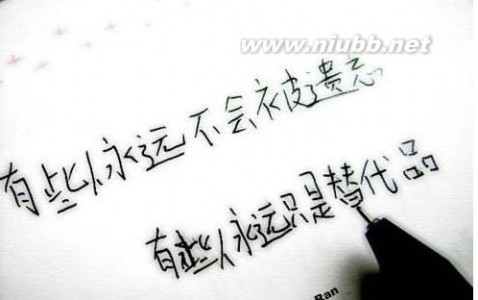 www.niubb.net
有些人永远不会被遗忘
有些人永远只是替代品
Ran